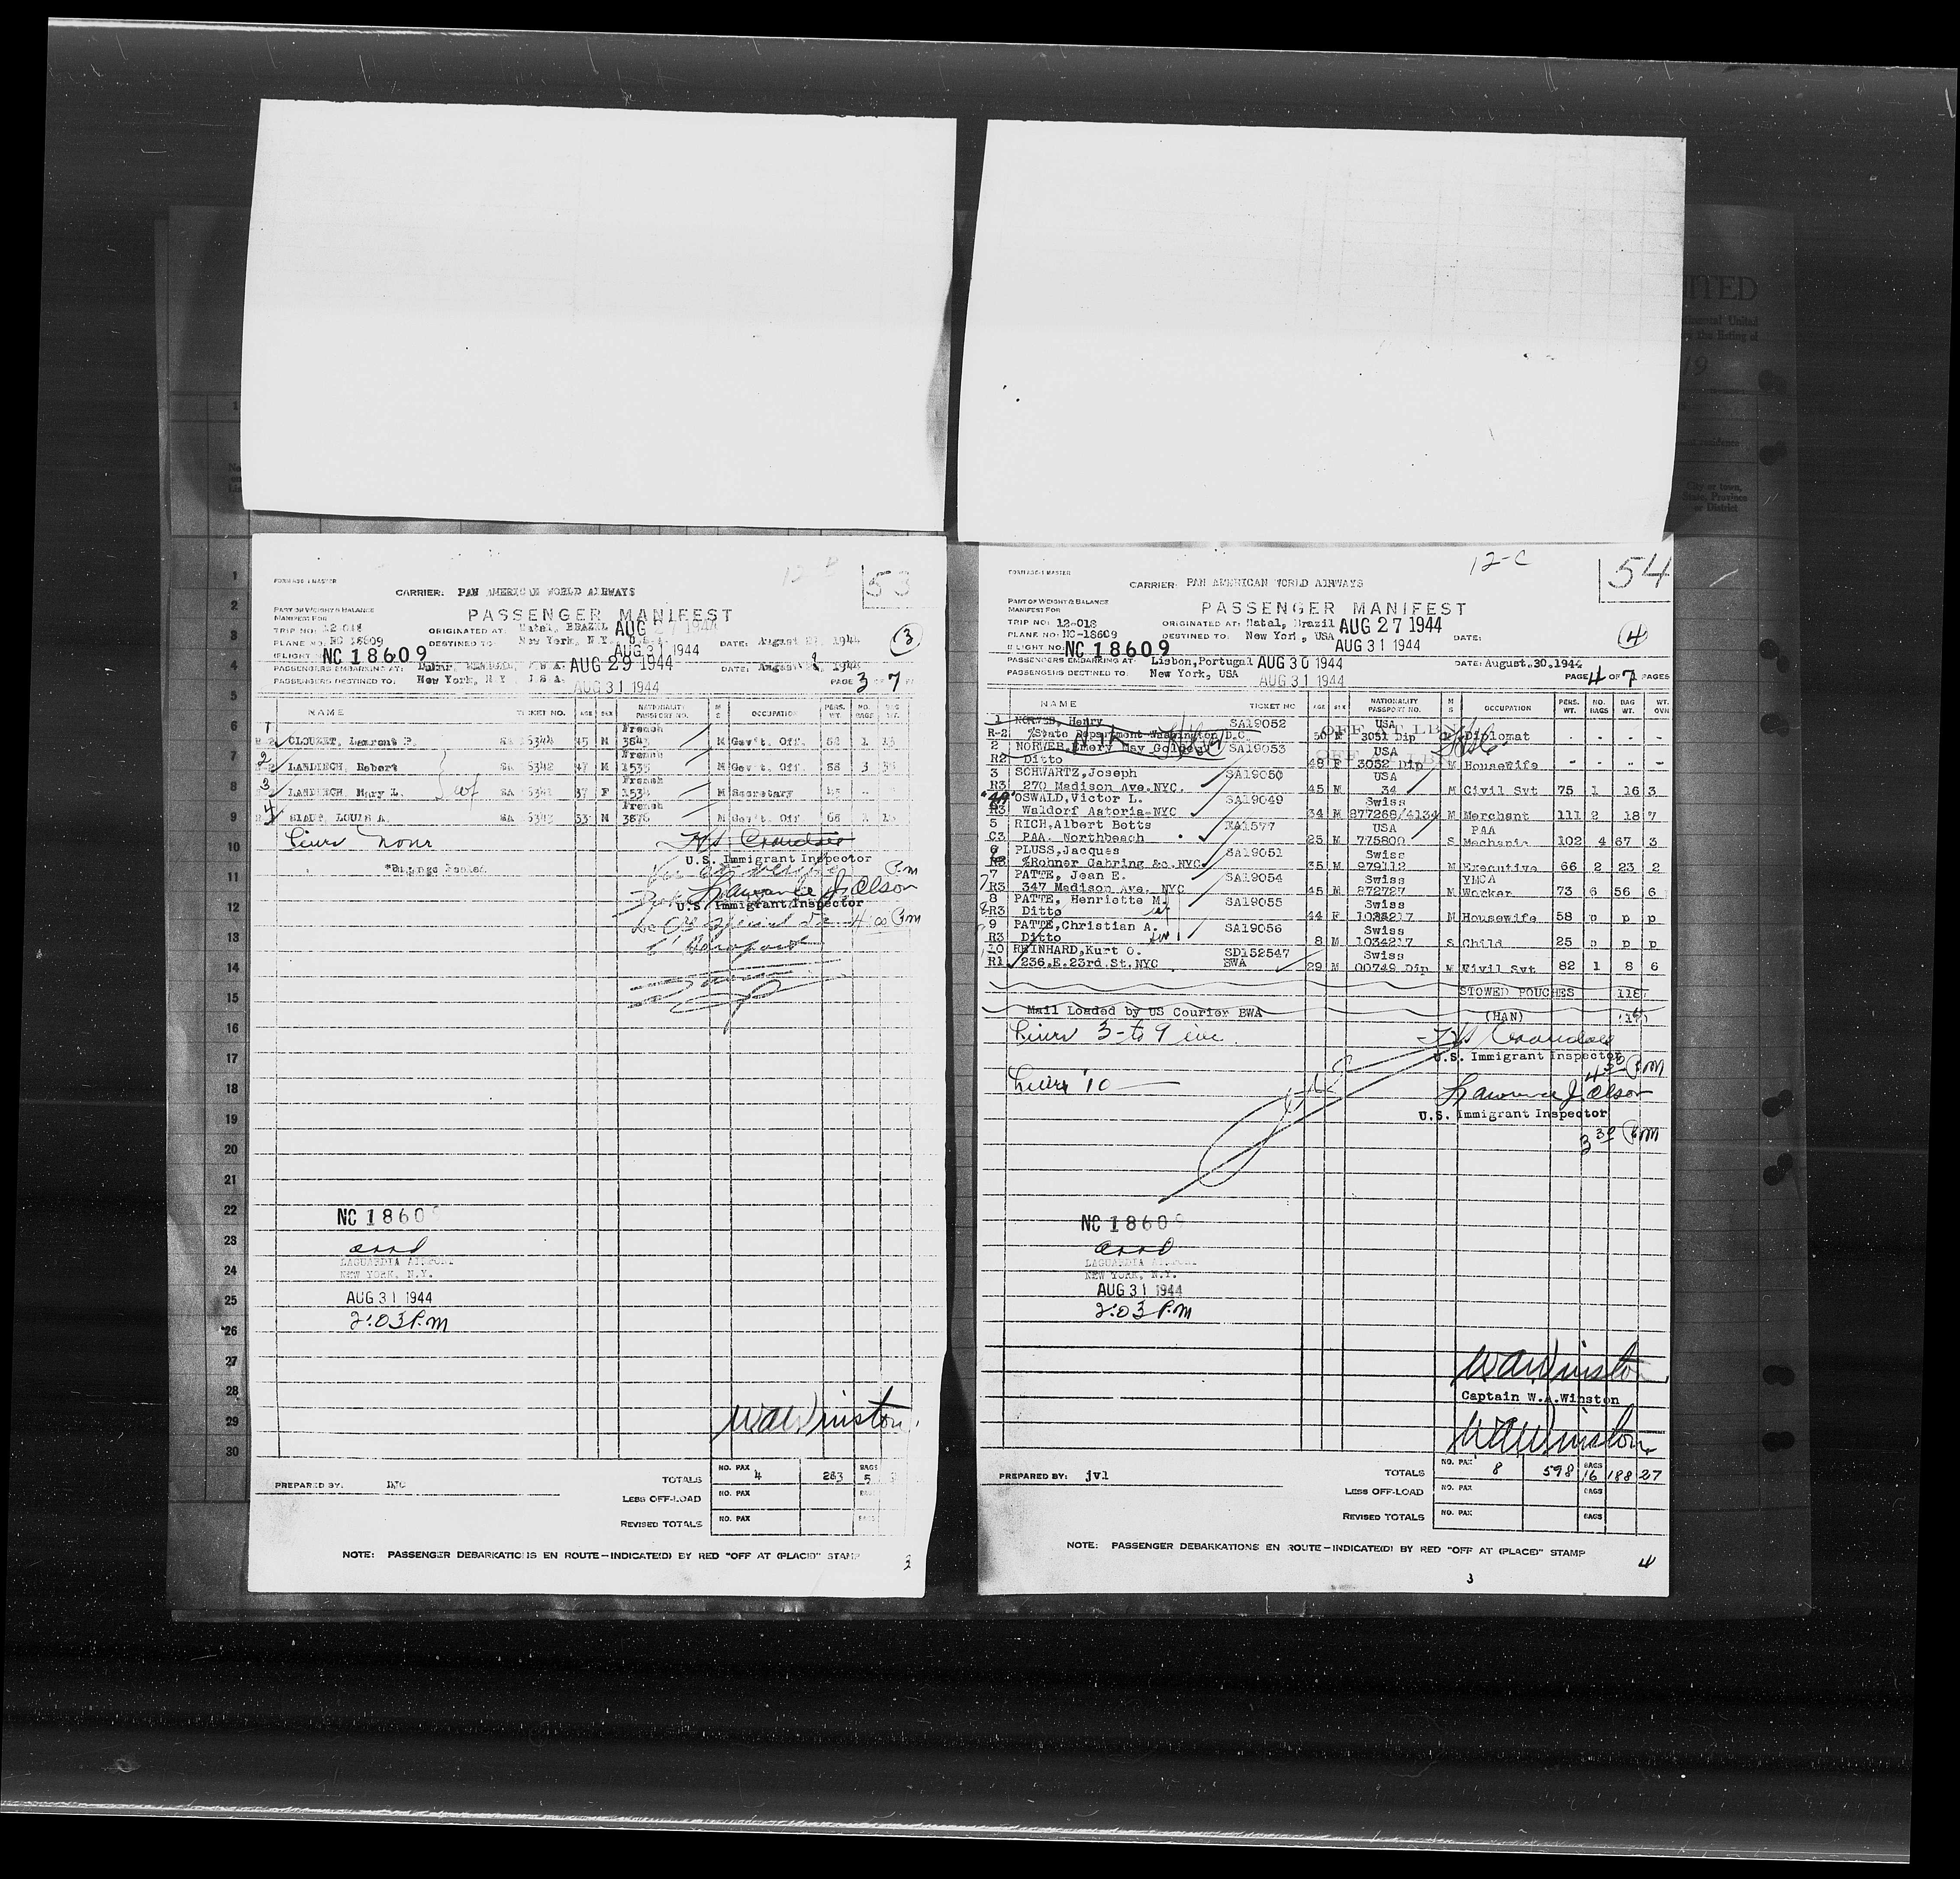 12-B
53
FORM ASC-1 MASTER
CARRIER: PAN AMERICAN WORLD AIRWAYS
PART OF WEIGHT & BALANCE
MANIFEST FOR
PASSENGER MANIFEST
TRIP NO: 12-018
ORIGINATED AT: Natal, BRAZIL AUG 27 1944
PLANE NO. NC 18609
DESTINED TO: New York, N.Y., U.S.A. DATE: August 1944
3
AUG 31 1944
FLIGHT NO: NC 18609
PASSENGERS EMBARKING AT: AUG 29 1944 DATE: August 1944
PASSENGERS DESTINED TO: New York, N Y U.S.A. AUG 31 1944 PAGE 3 OF 7
NAME TICKET NO. AGE SEX NATIONALITY PASSPORT NO. M S OCCUPATION PERS. WT. NO. BAGS BAG WT.
1 French
CLOUZET, Laurent P. 6344 45 M M Gov't. Off. 1
2 French
Robert 6342 47 M 1535 M Gov't. Off. 88 3
3 French
Mary L. 37 F 1534 M Secretary
4 French
LOUIS A. 33 M 3876 M Gov't. Off 68 1
*Baggage Pooled
U.S. Immigrant Inspector
Lawrence J. Olson
U.S. Immigrant Inspector
NC 18609
LAGUARDIA AIRPORT
NEW YORK, N.Y.
AUG 31 1944
2:03 P.M
WA Winston
TOTALS NO. PAX 4 283 BAGS 5
PREPARED BY:
LESS OFF-LOAD NO. PAX BAGS
REVISED TOTALS NO. PAX BAGS
NOTE: PASSENGER DEBARKATIONS EN ROUTE—INDICATE(D) BY RED "OFF AT (PLACE)" STAMP
3
12-C
54
FORM ASC-1 MASTER
CARRIER: PAN AMERICAN WORLD AIRWAYS
PART OF WEIGHT & BALANCE
MANIFEST FOR
PASSENGER MANIFEST
TRIP NO: 12-018 ORIGINATED AT: Natal, Brazil AUG 27 1944
PLANE NO: NC-18609 DESTINED TO: New York, USA AUG 31 1944 DATE:
4
FLIGHT NO: NC 18609
PASSENGERS EMBARKING AT: Lisbon, Portugal AUG 30 1944 DATE: August.30.1944
PASSENGERS DESTINED TO: New York, USA AUG 31 1944 PAGE 4 OF 7 PAGES
NAME TICKET NO AGE SEX NATIONALITY PASSPORT NO. M S OCCUPATION PERS. WT. NO. BAGS BAG WT. WT. OVR
1 NORWEB, Henry SA19052 USA
R-2 %State Department Washington D.C. 50 M 3051 Dip M Diplomat - - - -
2 NORWEB, Emery May SA19053 USA
R2 Ditto 48 F 3052 Dip M Housewife - - - -
3 SCHWARTZ, Joseph SA19050 USA
R3 270 Madison Ave.NYC. 45 M 34 M Civil Svt 75 1 16 3
OSWALD, Victor L. SA19049 Swiss
R3 Waldorf Astoria-NYC 34 M 877268/4134 M Merchant 111 2 18 7
5 RICH, Albert Betts NA1577 USA PAA
C3 PAA. Northbeach 23 M 775800 S Mechanic 102 4 67 3
6 PLUSS, Jacques SA19051 Swiss
R3 %Rohner Gahring &c.NYC 35 M 979112 M Executive 66 2 23 2
7 PATTE, Jean E. SA19054 Swiss YMCA
R3 347 Madison Ave. NYC 45 M 872727 M Worker 73 6 56 6
8 PATTE, Henriette M. SA19055 Swiss
R3 Ditto 44 F 1034217 M Housewife 58 p p p
9 PATTE, Christian A. SA19056 Swiss
R3 Ditto 8 M 1034217 S Child 25 p p p
10 REINHARD, Kurt O. SD152547 Swiss
R1 236.E.23rd.St.NYC BWA 29 M 00749 Dip M Civil Svt 82 1 8 6
STOWED POUCHES 118
Mail Loaded by US Courier BWA (HAN)
3 - to 9 inc
U.S. Immigrant Inspector
4 30 PM
10
Lawrence J. Olson
U.S. Immigrant Inspector
3 30 PM
NC 18609
LAGUARDIA AIRPORT
NEW YORK, N.Y.
AUG 31 1944
2:03 P.M
WA Winston
Captain W.A.Winston
WA Winston
PREPARED BY: jvl TOTALS NO. PAX 8 598 BAGS 16 188 27
LESS OFF-LOAD NO. PAX BAGS
REVISED TOTALS NO. PAX BAGS
NOTE: PASSENGER DEBARKATIONS EN ROUTE—INDICATE(D) BY RED "OFF AT (PLACE)" STAMP
4
3
1
2
3
4
5
6
7
8
9
10
11
12
13
14
15
16
17
18
19
20
21
22
23
24
25
26
27
28
29
30